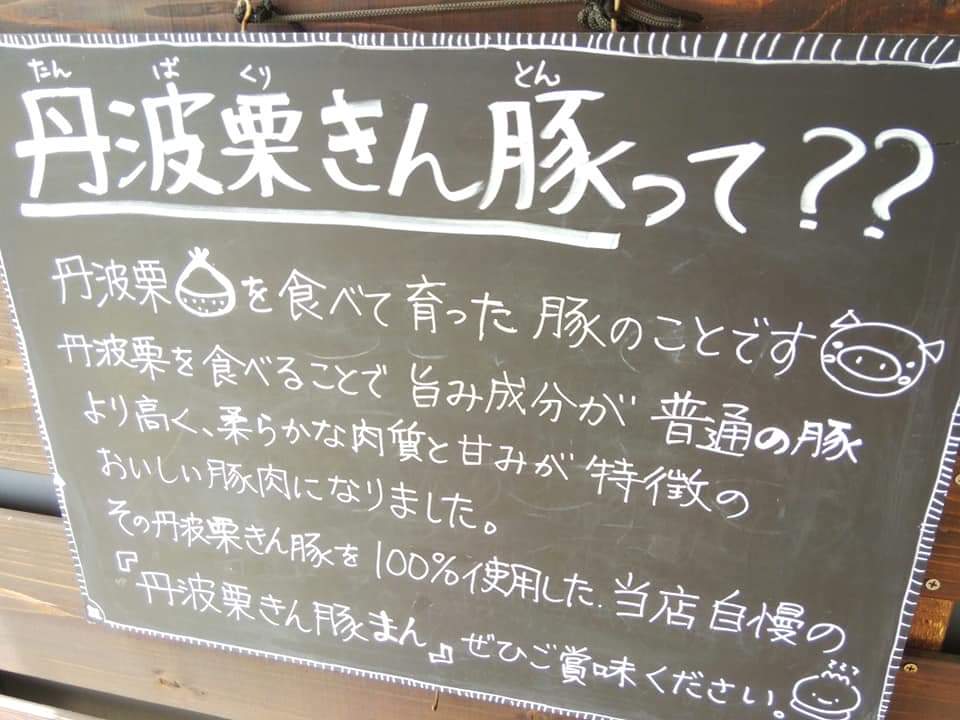 たん ば くり とん
丹波栗きん豚って??
丹波栗を食べて育った豚のことです
丹波栗を食べることで旨み成分が普通の豚
より高く、柔らかな肉質と甘みが特徴の
おいしい豚肉になりました。
その丹波栗きん豚を100%使用した、当店自慢の
『丹波栗きん豚まん』ぜひご賞味ください。